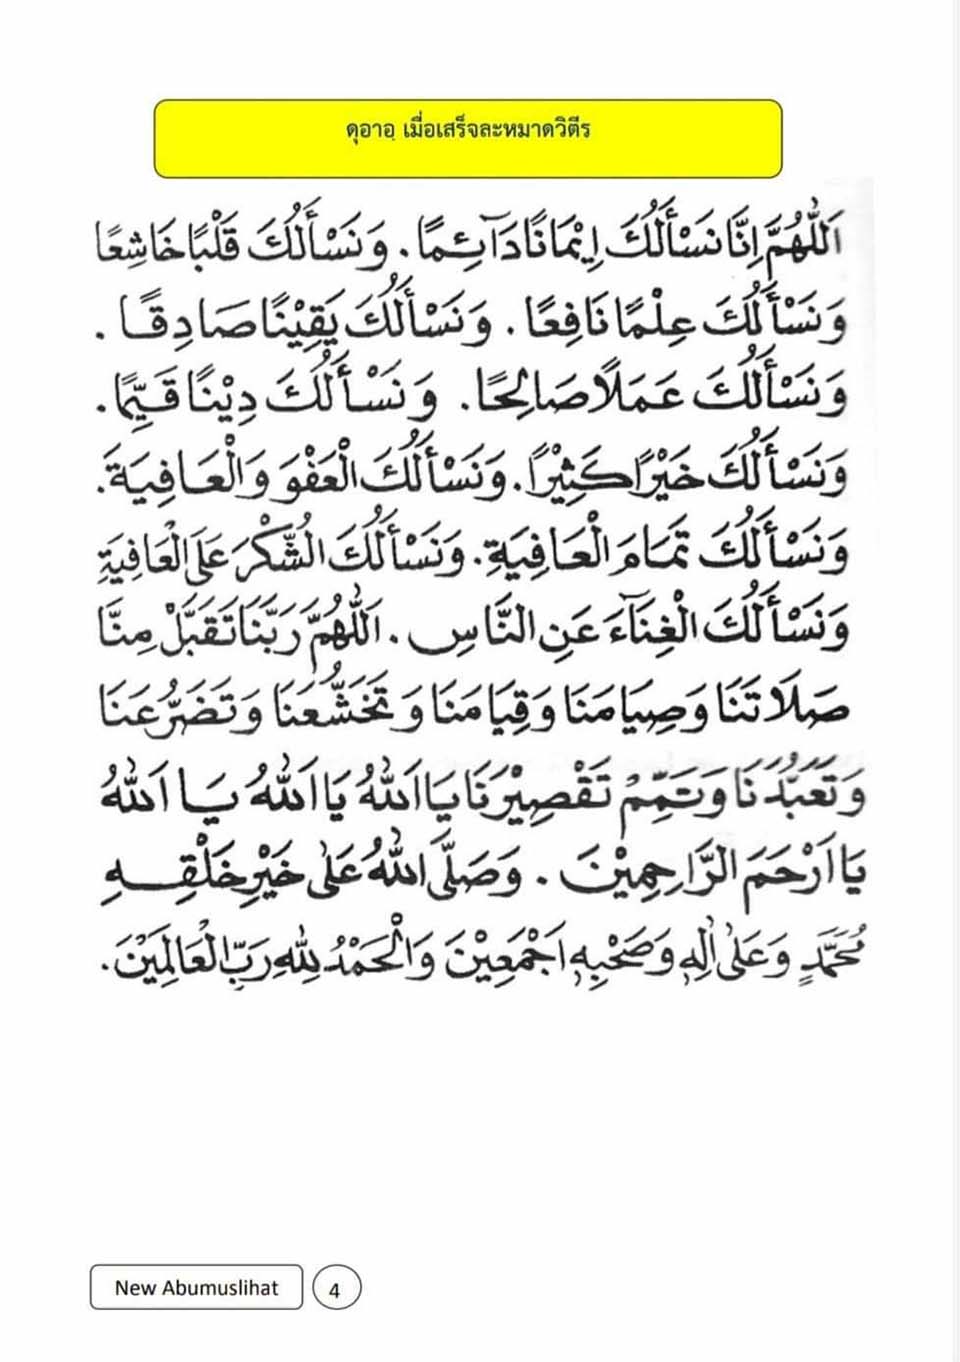 ดุอาอฺ เมื่อเสร็จละหมาดวิตีร
اَللّٰهُمَّ اِنَّا نَسْأَلُكَ اِيْمَانًا دَآئِمًا. وَنَسْأَلُكَ قَلْبًا خَاشِعًا
وَنَسْأَلُكَ عِلْمًا نَافِعًا. وَنَسْأَلُكَ يَقِيْنًا صَادِقًا.
وَنَسْأَلُكَ عَمَلًا صَالِحًا. وَنَسْأَلُكَ دِيْنًا قَيِّمًا.
وَنَسْأَلُكَ خَيْرًا كَثِيْرًا. وَنَسْأَلُكَ الْعَفْوَ وَالْعَافِيَةَ.
وَنَسْأَلُكَ تَمَامَ الْعَافِيَةِ. وَنَسْأَلُكَ الشُّكْرَ عَلَى الْعَافِيَةِ
وَنَسْأَلُكَ الْغِنَآءَ عَنِ النَّاسِ. اَللّٰهُمَّ رَبَّنَا تَقَبَّلْ مِنَّا
صَلَاتَنَا وَصِيَامَنَا وَقِيَامَنَا وَتَخَشُّعَنَا وَتَضَرُّعَنَا
وَتَعَبُّدَنَا وَتَمِّمْ تَقْصِيْرَنَا يَا اَللّٰهُ يَا اَللّٰهُ يَا اَللّٰهُ
يَا اَرْحَمَ الرَّاحِمِيْنَ. وَصَلَّى اللّٰهُ عَلٰى خَيْرِ خَلْقِهِ
مُحَمَّدٍ وَعَلٰى اٰلِهِ وَصَحْبِهِ اَجْمَعِيْنَ وَالْحَمْدُ لِلّٰهِ رَبِّ الْعَالَمِيْنَ.
New Abumuslihat 4